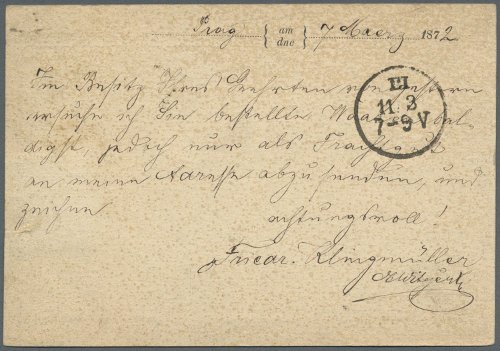 Prag am
dne 7 Maerz 1872
Im Besitz Ihres Geehrten von gestern
ersuche ich Sie bestellte Waare bal-
digst, jedoch nur als Frachtgut
an meine Adresse abzusenden, und
zeichne
achtungsvoll!
Friedr. Klingmüller
EI
11 3
7-9 V